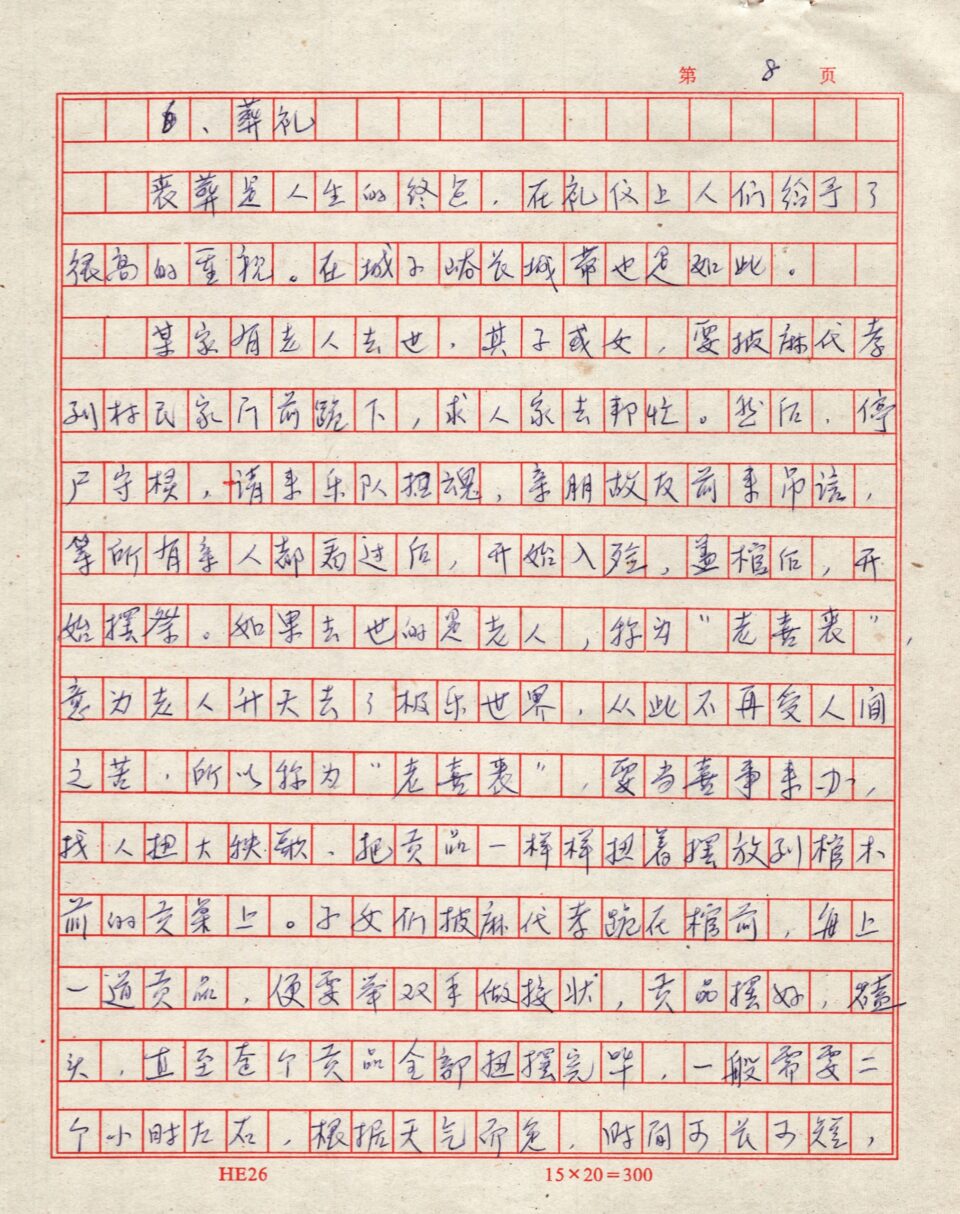 第 8 页
6、葬礼
丧葬是人生的终点，在礼仪上人们给予了
很高的重视。在城子峪长城带也是如此。
某家有老人去世，其子或女，要披麻代孝
到村民家门前跪下，求人家去邦忙。然后，停
尸守棂，请来乐队招魂，亲朋故友前来吊唁，
等所有亲人都看过后，开始入殓，盖棺后，开
始摆祭。如果去世的是老人，称为“老喜丧”，
意为老人升天去了极乐世界，从此不再受人间
之苦，所以称为“老喜丧”，要当喜事来办，
找人扭大秧歌、把贡品一样样扭着摆放到棺木
前的贡桌上。子女们披麻代孝跪在棺前，每上
一道贡品，便要举双手做接状，贡品摆好，磕
头，直至壱个贡品全部扭摆完毕，一般需要二
个小时左右，根据天气而免，时间可长可短，
HE26 15×20=300